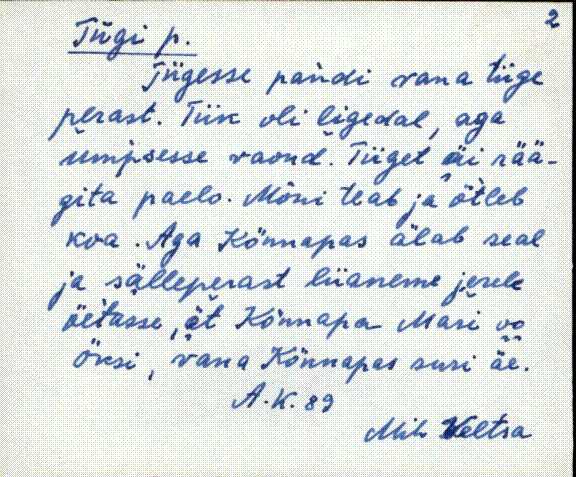 2
Tiigi p.
Tiigesse pańdi vana tiige
perast. Tiik oli ligedal, aga
umpsesse vaond. Tiiget äi rää-
gita paelo. Mõni teab ja ötleb
kva. Aga Könnapas älab seal
ja sälleperast liianeme jerele
öetasse, ät Könnapa Masi vo
Öksi, vana Könnapas suri äe.
A.K. 89
Mih Veltsa